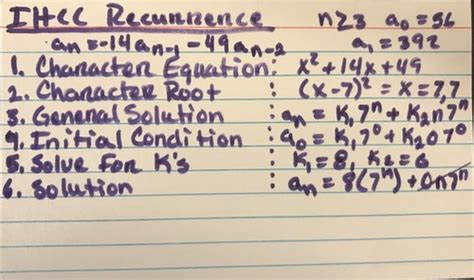 IHCC Recurrence n≥3 a₀=56
aₙ=-14aₙ₋₁-49aₙ₋₂ a₁=392
1. Character Equation: x²+14x+49
2. Character Root : (x-7)²=x=7,7
3. General Solution : aₙ=K₁7ⁿ+K₂n7ⁿ
4. Initial Condition : a₀=K₁7⁰+K₂07⁰
5. Solve for K's : K₁=8, K₂=6
6. Solution : aₙ=8(7ⁿ)+0n7ⁿ